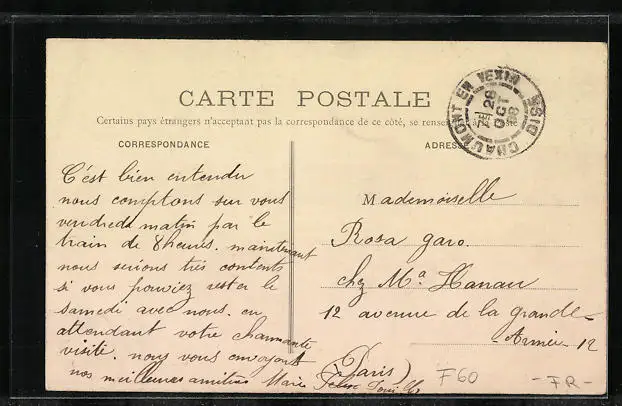 CARTE POSTALE
Certains pays étrangers n'acceptant pas la correspondance de ce côté, se à la
CORRESPONDANCE
ADRES
CHAUMONT EN VEXIN OISE
7H
26
OCT
08
C'est bien entendu
nous comptons sur vous
vendredi matin par le
train de 8 heures. maintenant
nous serions très contents
si vous pouviez rester le
samedi avec nous. en
attendant votre charmante
visite. nous vous envoyons
nos meilleures amitiés Marie
Mademoiselle
Rosa garo.
chez Mᵃ Hanau
12 avenue de la grande-
-Armée-12
(Paris)
F60
-FR-